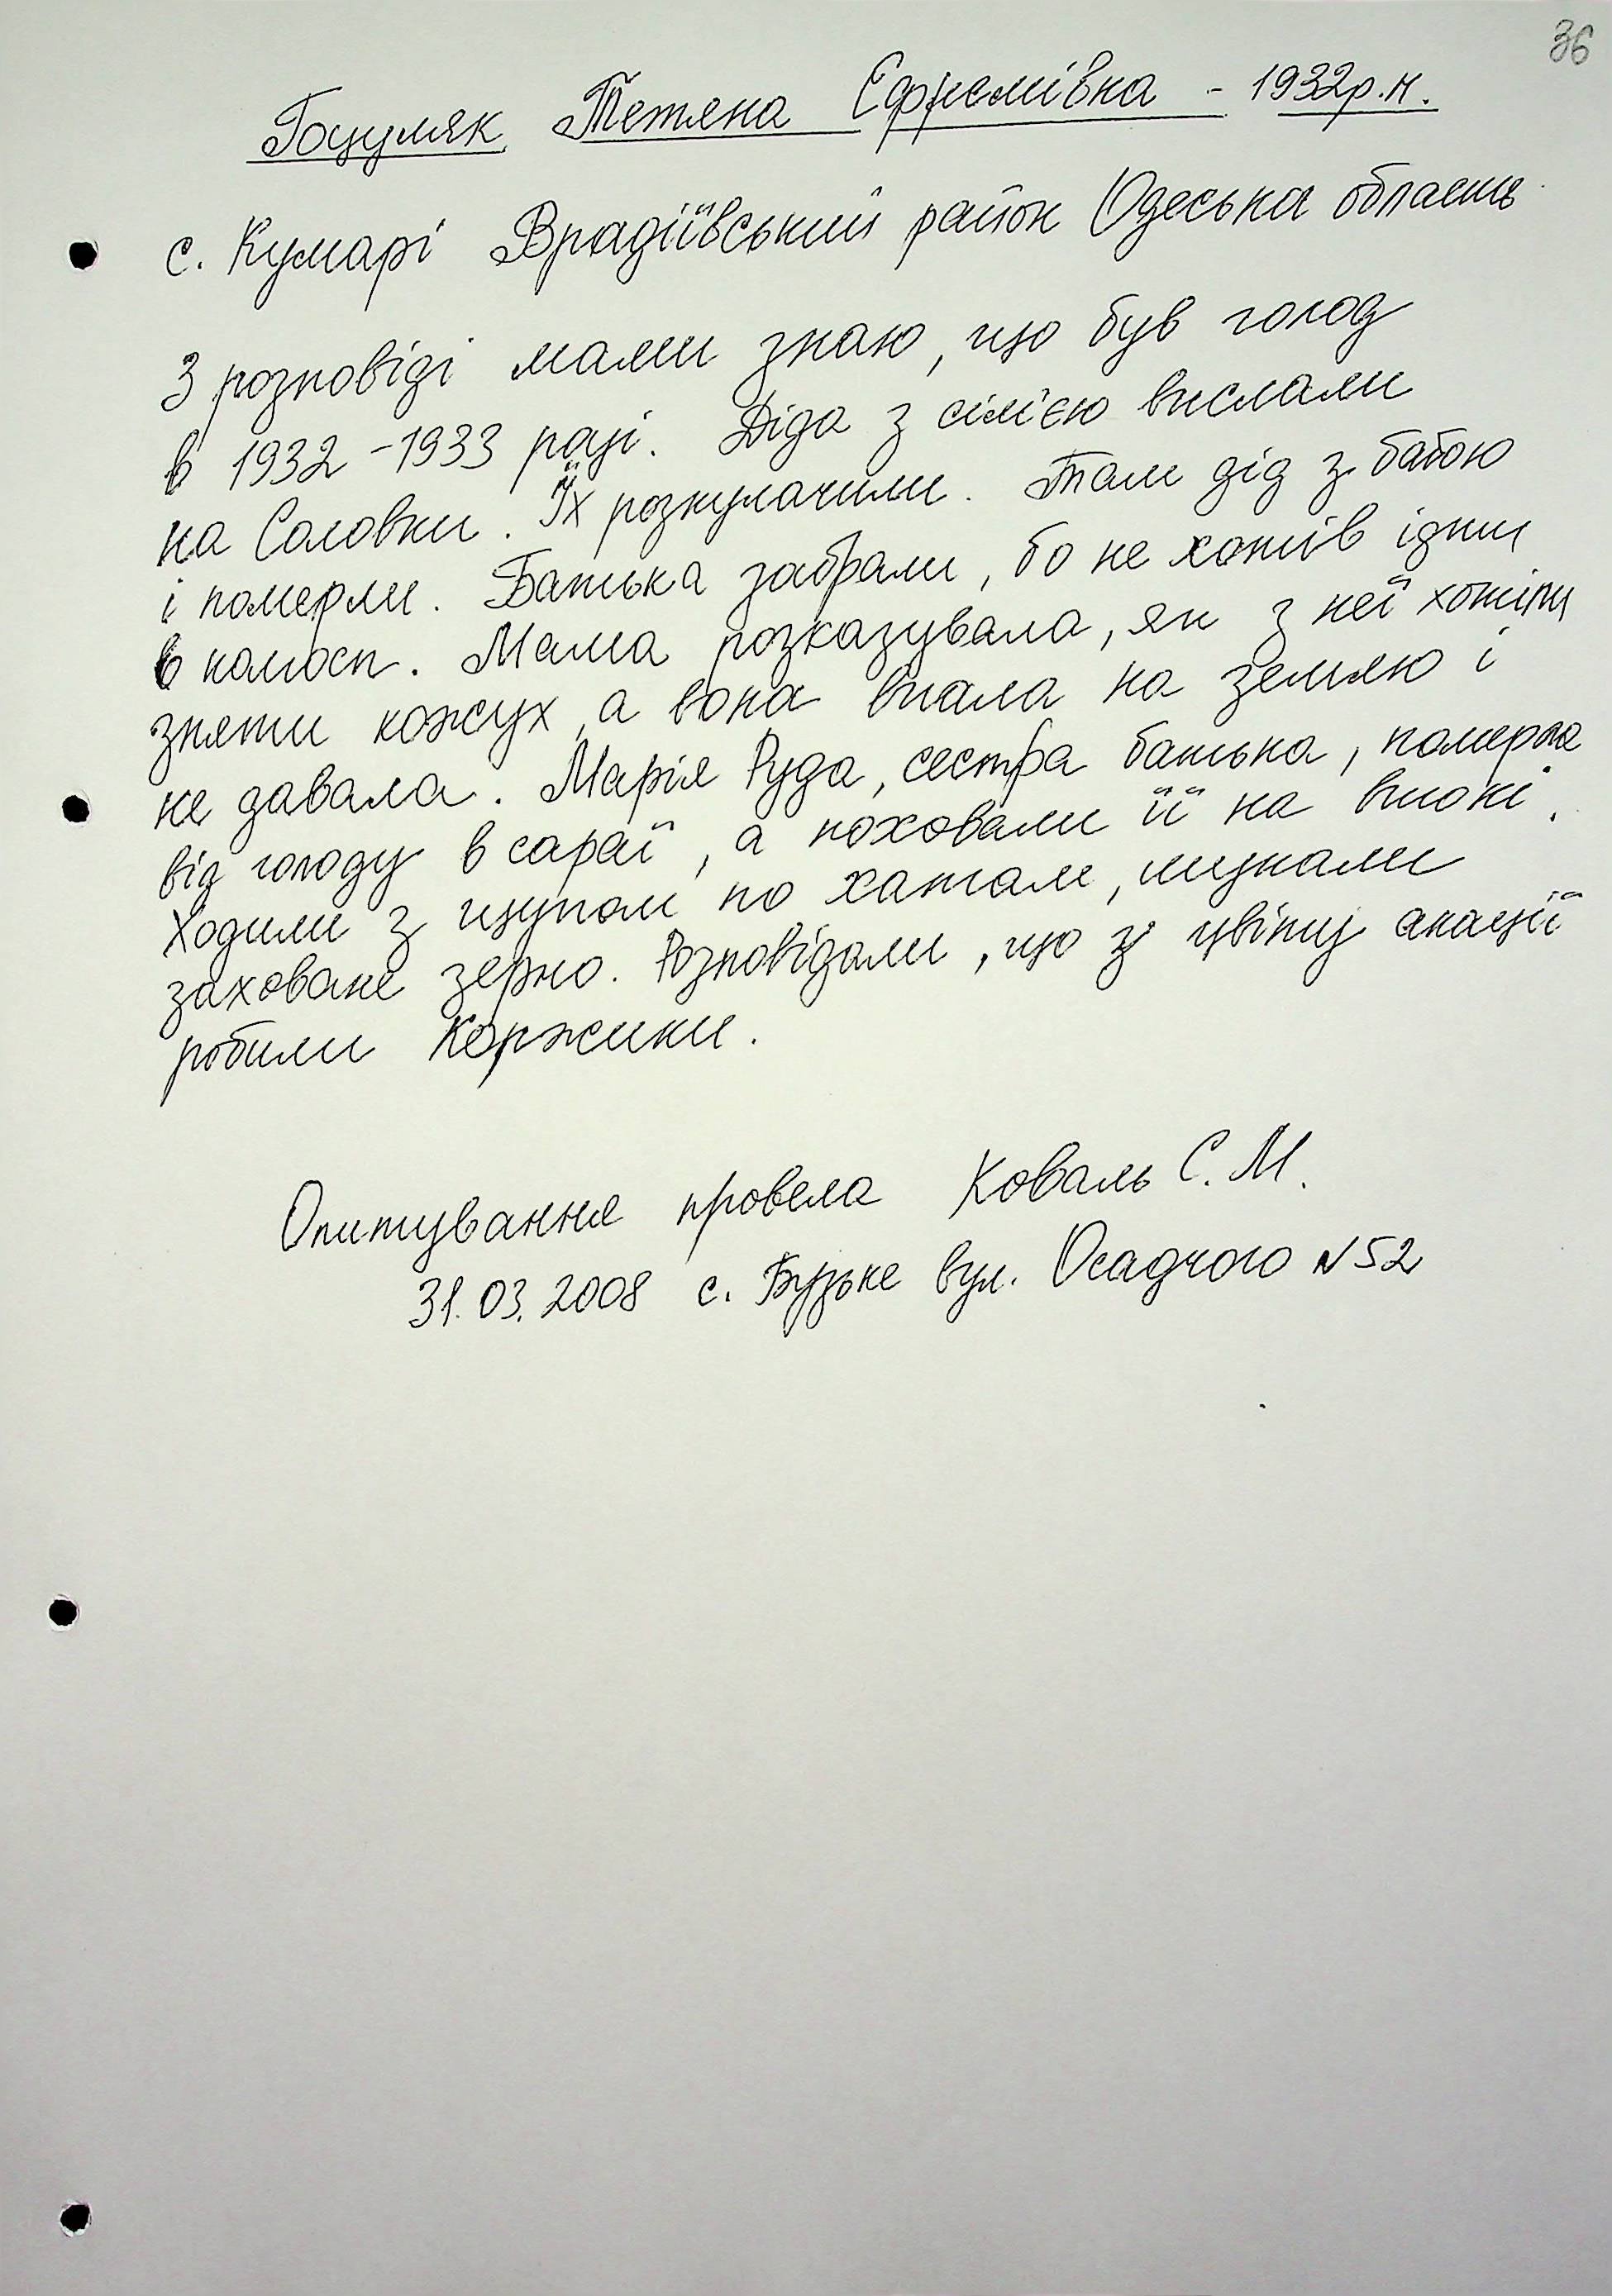 36
Гоцуляк Тетяна Єфремівна - 1932р.н.
с. Кумарі Врадіївський район Одеська область
З розповіді мами знаю, що був голод
в 1932-1933 році. Діда з сім'єю вислали
на Соловки. Їх розкулачили. Там дід з бабою
і померли. Батька забрали, бо не хотівідти
в колосп. Мама розказувала, як з неї хотіли
зняти кожух, а вона впала на землю і
не давала. Марія Руда, сестра батька, померла
від голоду в сараї, а поховали її на високі.
Ходили з щупом по хатам, шукали
заховане зерно. Розповідали, що з цвіту акації
робили коржики.
Опитування провела Коваль С.М.
31.03.2008 с. Бузьке вул. Осадчого N52